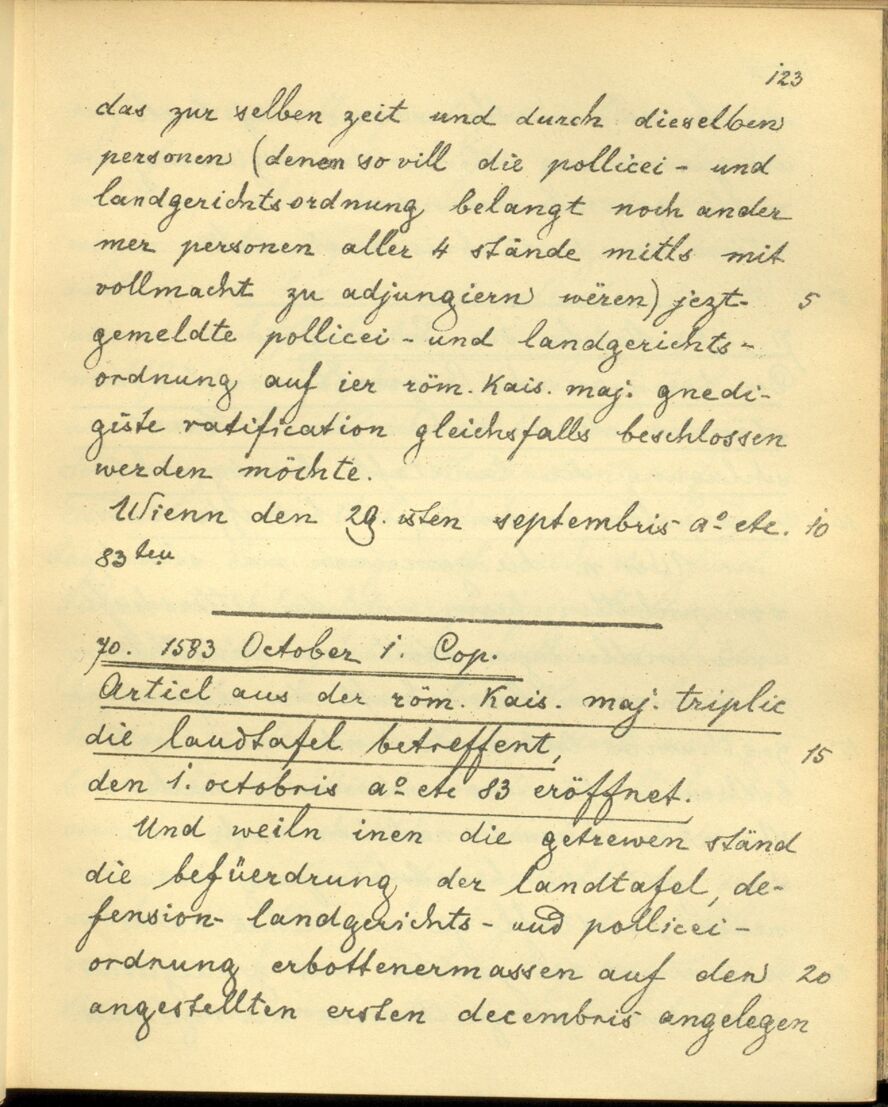 123
das zur selben zeit und durch dieselben
personen (denen so vill die pollicei - und
landgerichtsordnung belangt noch ander
mer personen aller 4 stände mitls mit
vollmacht zu adjungiern wëren) jezt- 5
gemeldte pollicei - und landgerichts-
ordnung auf ier röm. Kais. maj. gnedi-
giste ratification gleichsfalls beschlossen
werden möchte.
Wienn den 29. isten septembris aº etc. 10
83ten
70. 1583 October 1. Cop.
Articl aus der röm. Kais. maj. triplic
die landtafel betreffent, 15
den 1. octobris aº etc 83 eröffnet.
Und weiln inen die getrewen ständ
die befüerdrung der landtafel, de-
fension- landgerichts - und pollicei -
ordnung erbottenermassen auf den 20
angestellten ersten decembris angelegen